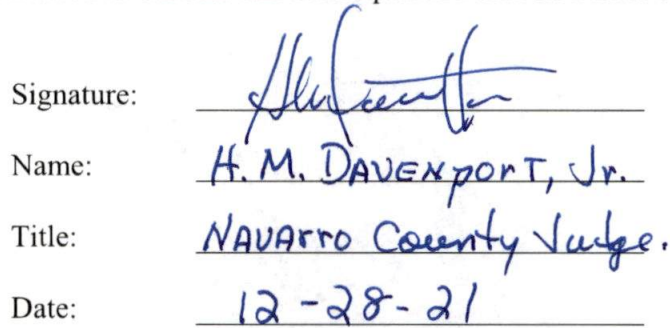 Signature:
Name: H. M. DAVENPORT, Jr.
Title: NAVARRO County Judge.
Date: 12-28-21